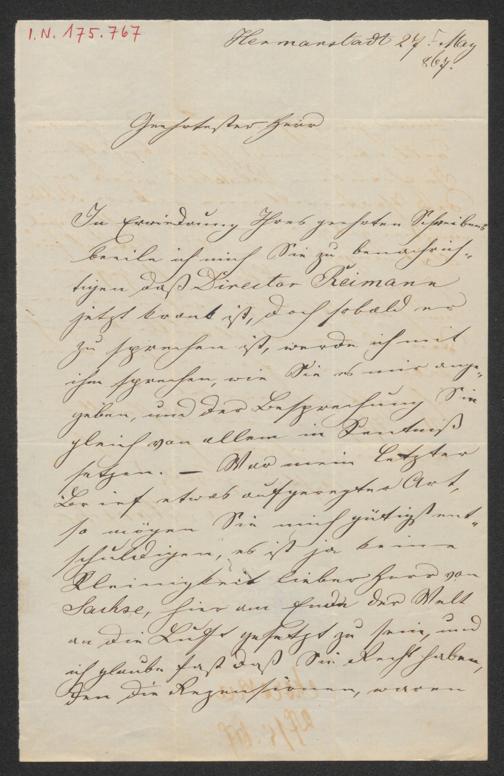 I.N. 175.767
Hermanstadt 27t May
867.
Geehrtester Herr
In Erwiedrung Ihres geehrten Schreibens
beeile ich mich Sie zu benachrich-
tigen daß Director Reimann
jetzt krank ist, doch sobald er
zu sprechen ist, werde ich mit
ihm sprechen, wie Sie es mir ange-
geben, und der Besprechung Sie
gleich von allem in Kentniß
setzen. — War mein letzter
Brief etwas aufgeregter Art,
so mögen Sie mich gütigst ent-
schuldigen, es ist ja keine
Kleinigkeit lieber Herr von
Sachse, hier am Ende der Welt
an die Luft gesetzt zu sein, und
ich glaube fast daß Sie Recht haben,
den die Rezensionen, waren